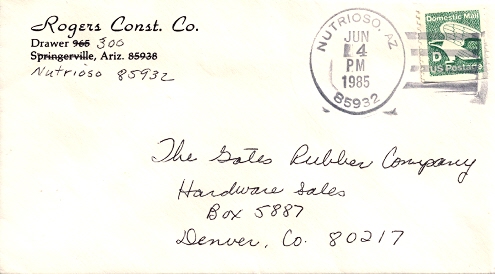 Rogers Const. Co.
Drawer 965 300
Springerville, Ariz. 85938
Nutrioso 85932
NUTRIOSO, AZ
JUN
4
PM
1985
85932
Domestic Mail
D
US Postage
The Gates Rubber Company
Hardware Sales
Box 5887
Denver, Co. 80217